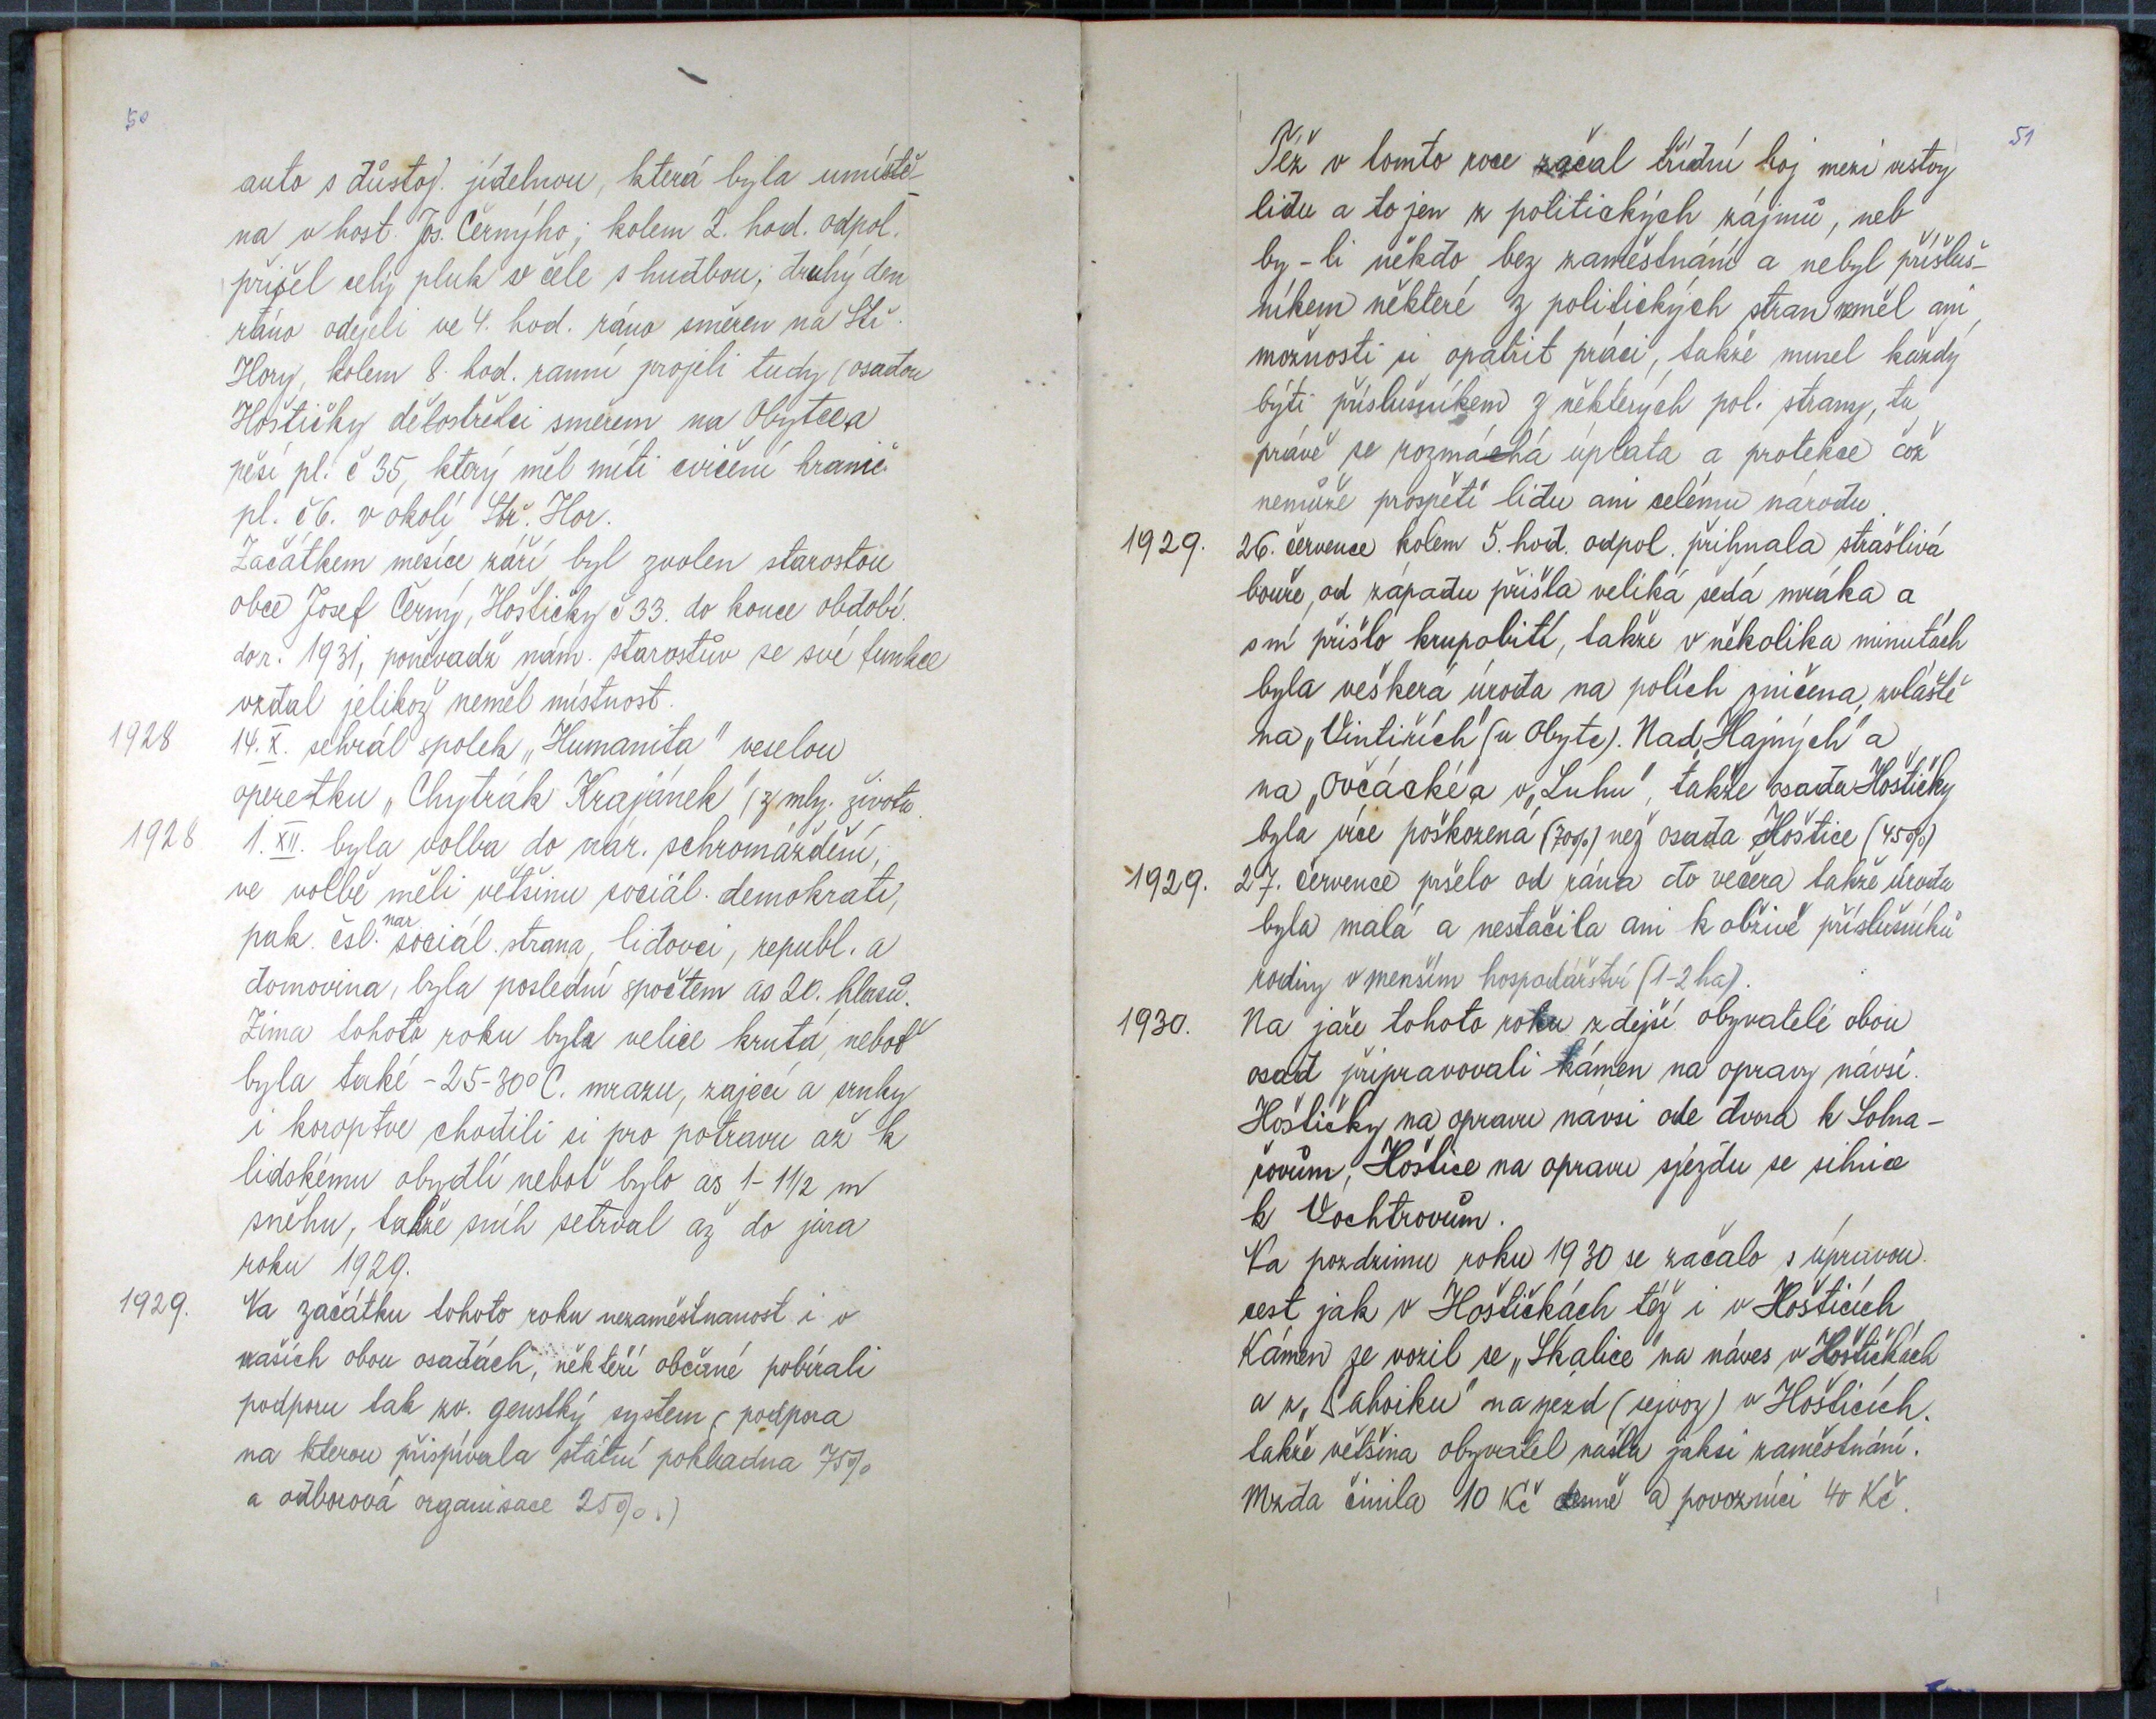 50
auto s důstoj. jídelnou, která byla umístě-
na v host. Jos. Černýho; kolem 2. hod. odpol.
přišel celý pluk v čele s hudbou; druhý den
ráno odejeli ve 4. hod. ráno směren na Stř.
Hory, kolem 8. hod. ranní projeli tudy (osadou
Hoštičky dělostřelci směrem na Obytce a
pěší pl. č 35, který měl míti cvičení hranič.
pl. č 6. v okolí Stř. Hor.
Začátkem měsíce září byl zvolen starostou
obce Josef Černý, Hoštičky č 33. do konce období.
do r. 1931, poněvadž nám. starostův se své funkce
vzdal jelikož neměl místnost.
1928 14. X. sehrál spolek „Humanita" veselou
operetku „Chytrák Krajánek" (z mlý. života.
1928 1. XII. byla volba do nár. schromáždění,
ve volbě měli většinu sociál. demokrati,
pak. čsl. nar sociál. strana, lidovci, republ. a
domovina, byla poslední spočtem as 20. hlasů.
Zima tohoto roku byla velice krutá, neboť
byla také -25-30° C. mrazu, zajeci a srnky
i koroptve chodili si pro potravu až k
lidskému obydlí neboť bylo as 1-1 1/2 m
sněhu, takže sníh setrval až do jara
roku 1929.
1929. Na začátku tohoto roku nezaměstnanost i v
našich obou osadách, někteří občané pobírali
podporu tak zv. genstký system (podpora
na kterou přispívala státní pokladna 75%
a odborová organisace 25%.)
51
Též v tomto roce začal třídní boj mezi vrstvy
lidu a to jen z politických zájmů, neb
by-li někdo bez zaměstnání a nebyl přísluš-
níkem některé z politických stran neměl ani
možnosti si opatřit práci, takže musel každý
býti příslušníkem z některých pol. strany, tu
právě se rozmáchá úplata a protekce což
nemůže prospěti lidu ani celému národu.
1929. 26. července kolem 5. hod. odpol. přihnala strašlivá
bouře, od západu přišla veliká šedá mráka a
s ní přišlo krupobití, takže v několika minutách
byla veškerá úroda na polích zničena, zvláště
na „Vintiřích" (u Obytc). Nad „Hájných" a
na „Ovčácké" a v „Luhu", takže osada Hoštičky
byla více poškozená (70%) než osada Hoštice (45%)
1929. 27. července pršelo od rána do večera takže úroda
byla malá a nestačila ani k obživě příslušníků
rodiny v menším hospodářství (1-2 ha).
1930. Na jaře tohoto roku zdejší obyvatelé obou
osad připravovali kámen na opravy návsí.
Hoštičky na opravu návsi ode dvora k Solna-
řovům, Hoštice na opravu sjezdu se silnice
k Vochtrovům.
Na pozdzimu roku 1930 se začalo s úpravou
cest jak v Hoštičkách též i v Hošticích
Kámen se vozil se „Skalice" na náves v Hoštičkách
a z „Lahoiku" na jezd (sejvoz) v Hošticích.
takže většina obyvatel našla jaksi zaměstnání.
Mzda činila 10 Kč denně a povozníci 40 Kč.